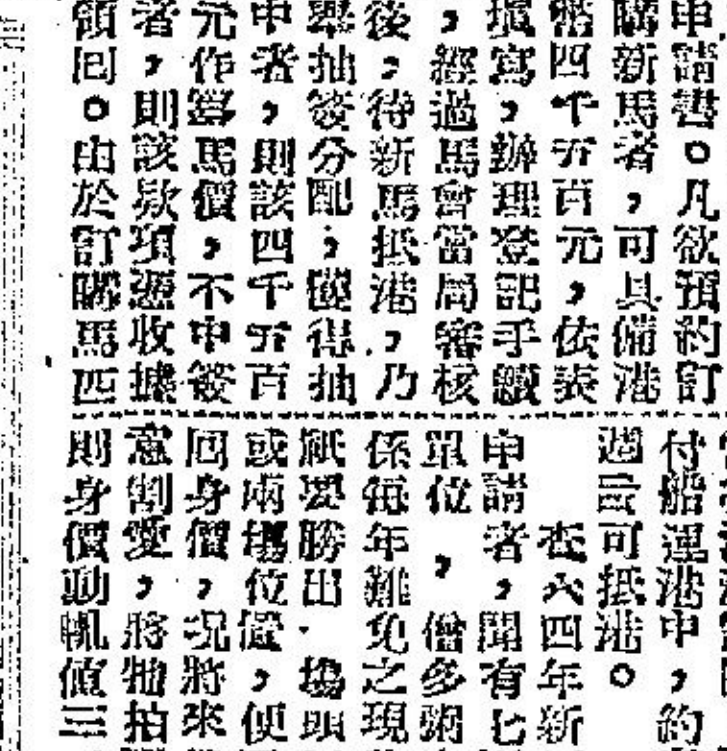 申請書。凡欲預約訂
購新馬者,可具備港
幣四千五百元,依表
填寫,辦理登記手續
,經過馬會當局審核
後,待新馬抵港,乃
舉抽簽分配,僥得抽
中者,則該四千五百
元作算馬價,不中簽
者,則該欵項憑收據
領回。由於訂購馬匹
付船運港中,約
週云可抵港。
查六四年新
申請者,聞有七
單位,僧多粥
係每年難免之現
祇要勝出.塲頭
或兩塲位置,便
回身價,况將來
意割愛,將牠拍
則身價動輒值三